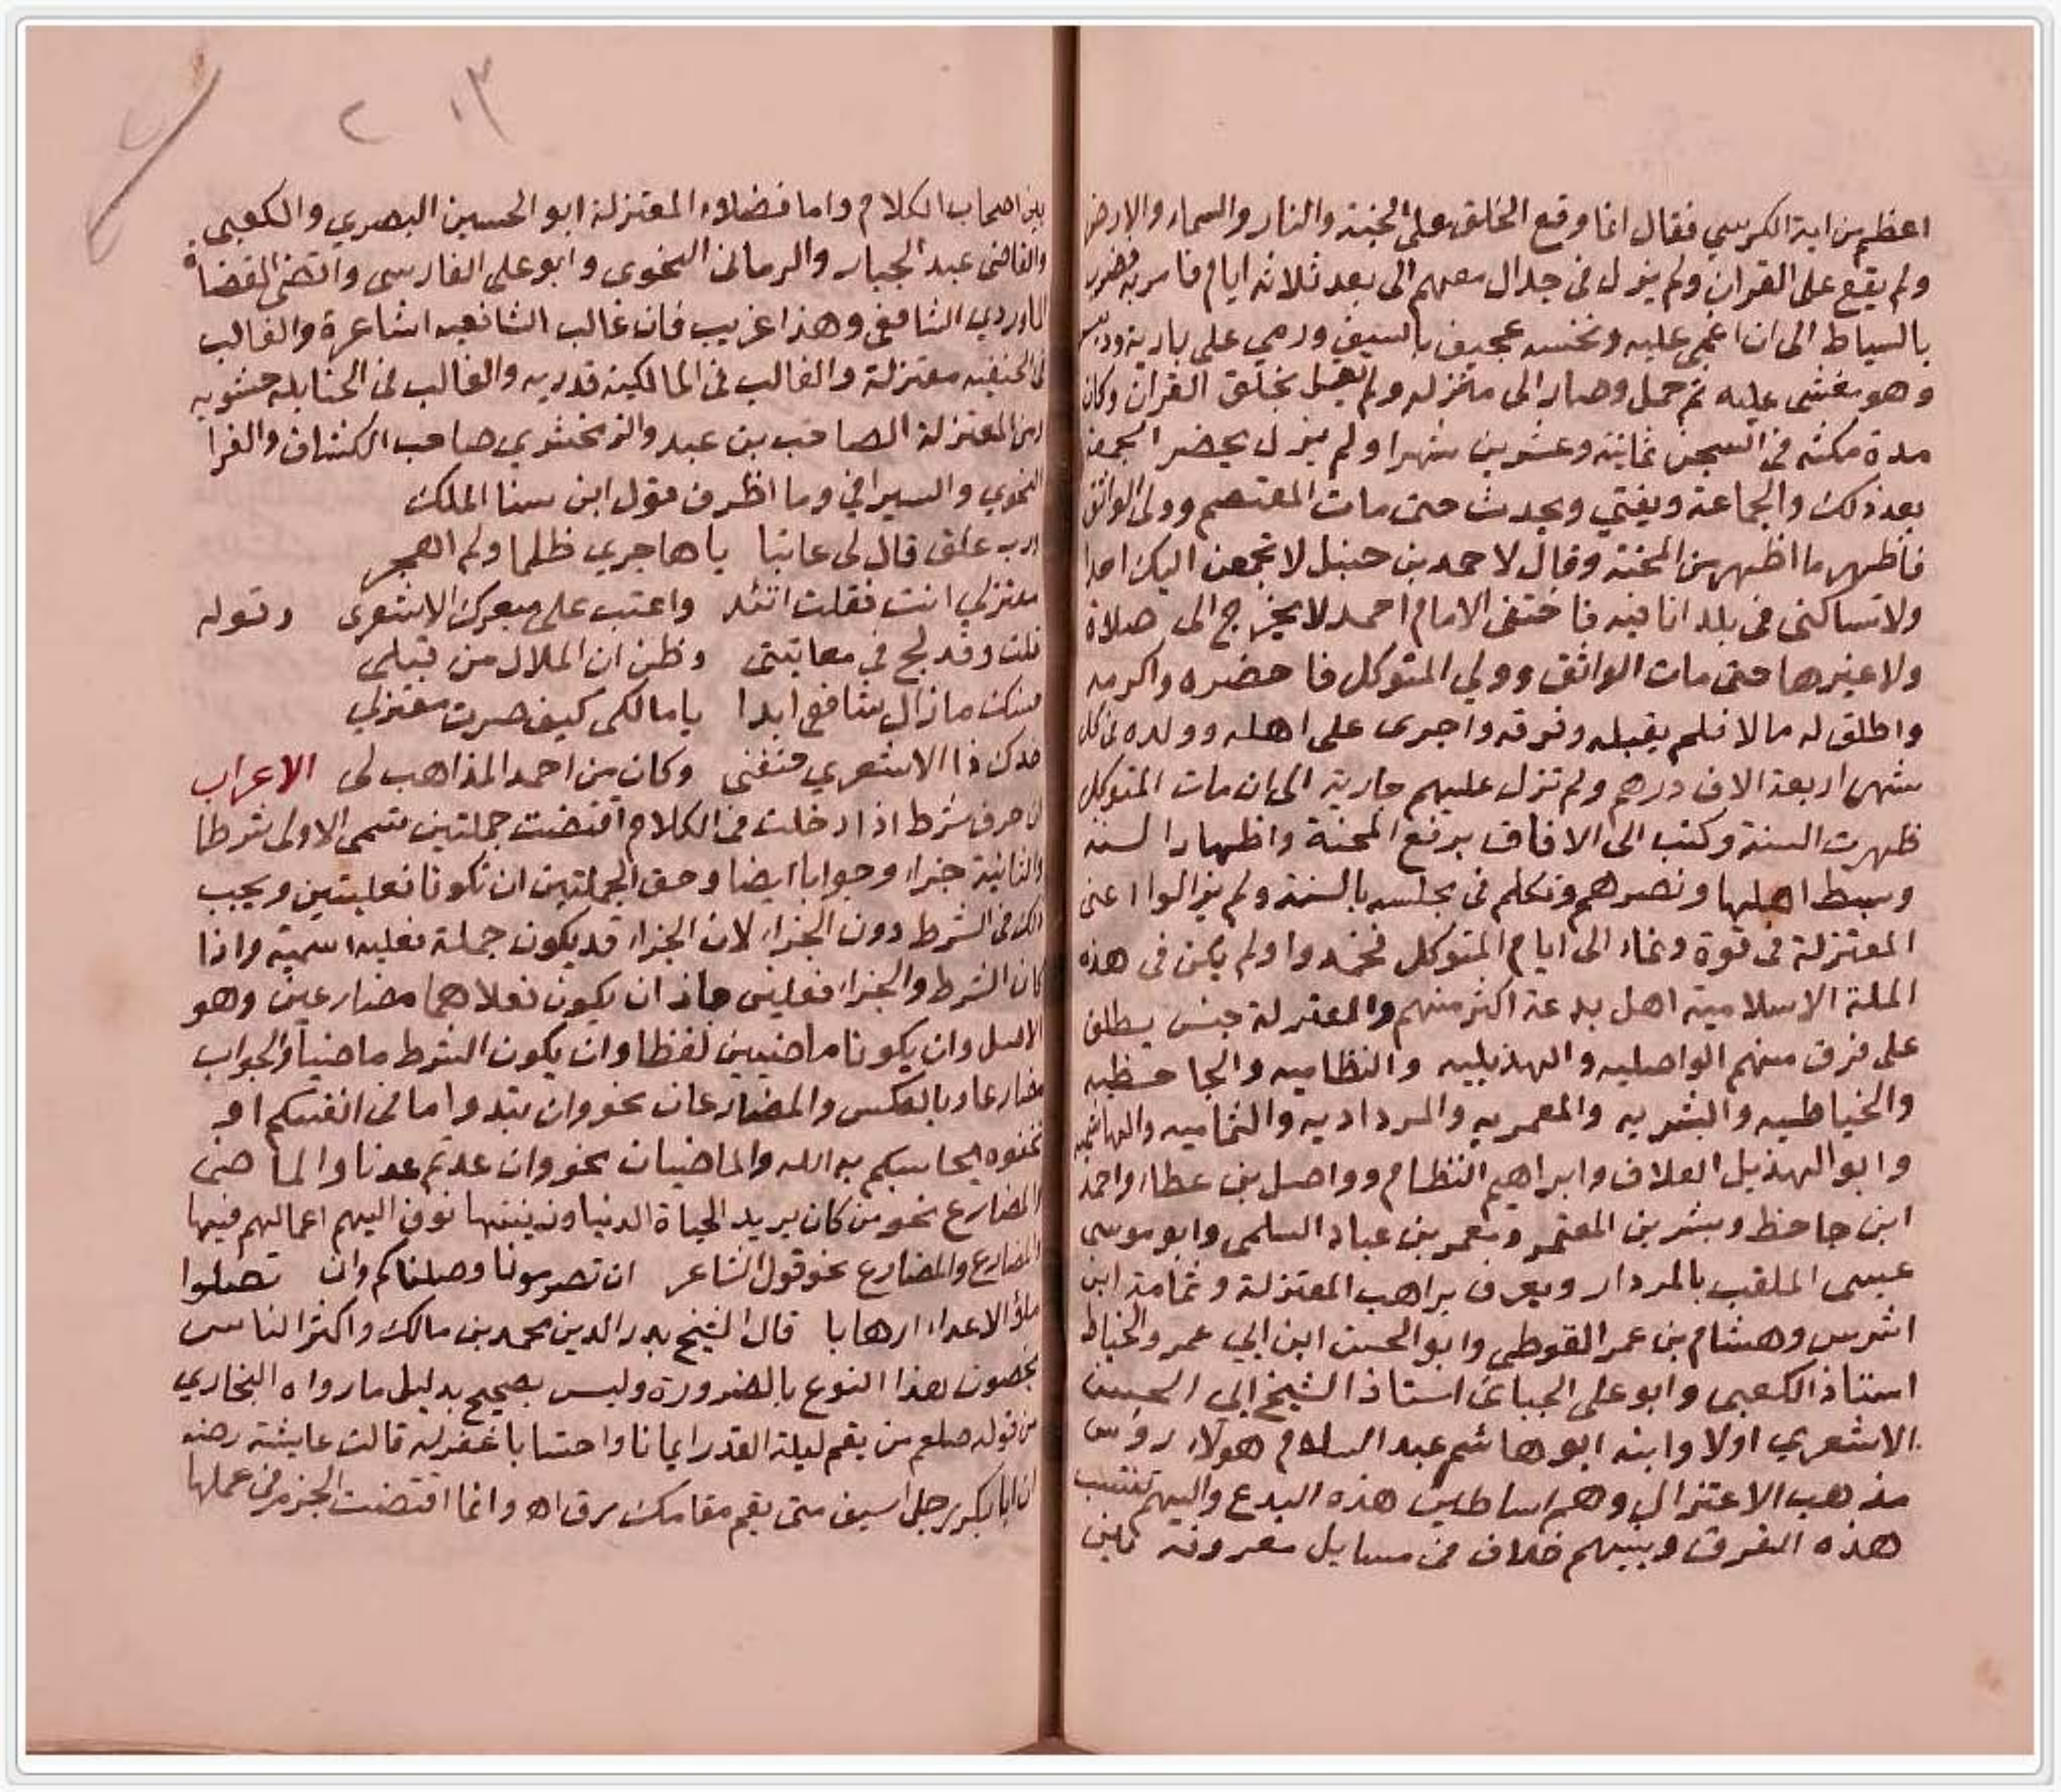 اعظم من اية الكرسي فقال انما وقع الخلق على الجنة والنار والسماء والارض
ولم يقع على القران ولم يزل في جدال معهم الى بعد ثلاثة ايام فامر به فضرب
بالسياط الى ان اغمي عليه ونخسه عجيف بالسيف ورمي على بارية وديس
وهو مغشى عليه ثم حمل وصار الى منزله ولم يقبل بخلق القران وكان
مدة مكثه في السجن ثمانية وعشرين شهرا ولم يزل يحضر الجمعة
بعد ذلك والجماعة ويفتي ويحدث حتى مات المعتصم وولى الواثق
فاظهر ما اظهر من المحنة وقال لاحمد بن حنبل لا تجمعن اليك احدا
ولا تساكنى فى بلد انا فيه فاختفى الامام احمد لا يخرج الى صلاة
ولا غيرها حتى مات الواثق وولي المتوكل فاحضره واكرمه
واطلق له مالا فلم يقبله وفرقه واجرى على اهله وولده فى كل
شهر اربعة الاف درهم ولم تزل عليهم جارية الى ان مات المتوكل
ظهرت السنة وكتب الى الافاق برفع المحنة واظهار السنة
وبسط اهلها ونصرهم وتكلم فى مجلسه بالسنة ولم يزالوا اعنى
المعتزلة فى قوة ونماء الى ايام المتوكل فخمدوا ولم يكن فى هذه
الملة الاسلامية اهل بدعة اكثر منهم والمعتزلة جنس يطلق
على فرق منهم الواصليه والهذيليه والنظاميه والجاحظيه
والخياطيه والبشريه والمعمريه والمرداديه والثماميه والهاشميه
وابو الهذيل العلاف وابراهيم النظام وواصل بن عطاء واحمد
ابن جاحظ وبشر بن المعتمر ومعمر بن عباد السلمى وابو موسى
عيسى الملقب بالمردار ويعرف براهب المعتزلة وثمامة ابن
اشرس وهشام بن عمر القوطي وابو الحسن ابن ابي عمر والخياط
استاذ الكعبى وابو على الجبائى استاذ الشيخ ابى الحسن
الاشعري اولا وابنه ابو هاشم عبد السلام هولاء رؤس
مذهب الاعتزال وهم اساطين هذه البدع واليهم تنتسب
هذه الفرق وبينهم خلاف فى مسايل معروفة بين
بين اصحاب الكلام واما فضلاء المعتزلة ابو الحسين البصري والكعبى
والقاضى عبد الجبار والرمانى النحوى وابو على الفارسى واقضى القضاة
الماوردي الشافعى وهذا غريب فان غالب الشافعيه اشاعرة والغالب
فى الحنفيه معتزلة والغالب فى المالكية قدريه والغالب فى الحنابلة حشويه
ومن المعتزلة الصاحب بن عبد والزمخشري صاحب الكشاف والفرا
النحوي والسيرافي وما اظرف قول ابن سنا الملك
رب علق قال لى عاتبا يا هاجري ظلما ولم اهجر
معتزلي انت فقلت اتئد واعتب على مبعرك الاشعرى وقوله
قلت وقد لج في معاتبتى وظن ان الملال من قبلى
خدك ذا الاشعري حنفنى وكان من احمد المذاهب لى الاعراب
حسنك ما زال شافعى ابدا يا مالكى كيف صرت معتزلي
ان حرف شرط اذا دخلت فى الكلام اقتضت جملتين تسمى الاولى شرطا
والثانية جزاء وجوابا ايضا وحق الجملتين ان تكونا فعليتين ويجب
ذلك فى الشرط دون الجزاء لان الجزاء قد يكون جملة فعليه اسمية واذا
كان الشرط والجزاء فعلين جاز ان يكون فعلاهما مضارعين وهو
الاصل وان يكونا ماضيين لفظا وان يكون الشرط ماضيا والجواب
مضارعا وبالعكس والمضارعان نحو وان تبدوا ما فى انفسكم او
تخفوه يحاسبكم به الله والماضيان نحو وان عدتم عدنا والماضى
والمضارع نحو من كان يريد الحياة الدنيا وزينتها نوف اليهم اعمالهم فيها
والمضارع والمضارع نحو قول الشاعر ان تصرمونا وصلناكم وان تصلوا
ملؤ الاعداء ارهابا قال الشيخ بدر الدين محمد بن مالك واكثر الناس
يخصون هذا النوع بالضرورة وليس بصحيح بدليل ما رواه البخاري
من قوله صلعم من يقم ليلة القدر ايمانا واحتسابا غفر له قالت عايشة رضه
ان ابا بكر رجل اسيف متى يقم مقامك رق اه وانما اقتضت الجزم فى عملها